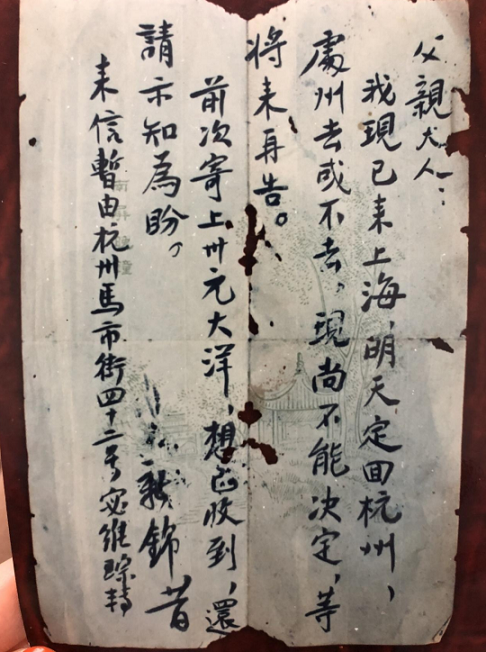 父親大人：
我現已來上海，明天定回杭州，
處州去或不去，現尚不能決定，等
將來再告。
前次寄上卅元大洋，想已收到，還
請示知為盼，
錦昔
來信暫由杭州馬市街四十二号宓維琮轉